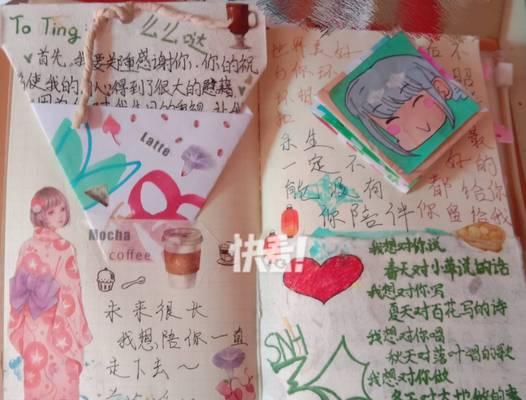 To Ting
么么哒
首先,我要郑重感谢你,你的祝
使我的人心得到了很大的慰藉
Latte
Mocha
coffee
未来很长
我想陪你一直
走下去~
世界美好
与你环
环相
扣
余生
一定不
能没有
你陪伴
最
好的
都给你
你留给我
快看!
我想对你说
春天对小草说的话
我想对你写
夏天对百花写的诗
我想对你唱
秋天对落叶唱的歌
我想对你做
冬天对大地做的事